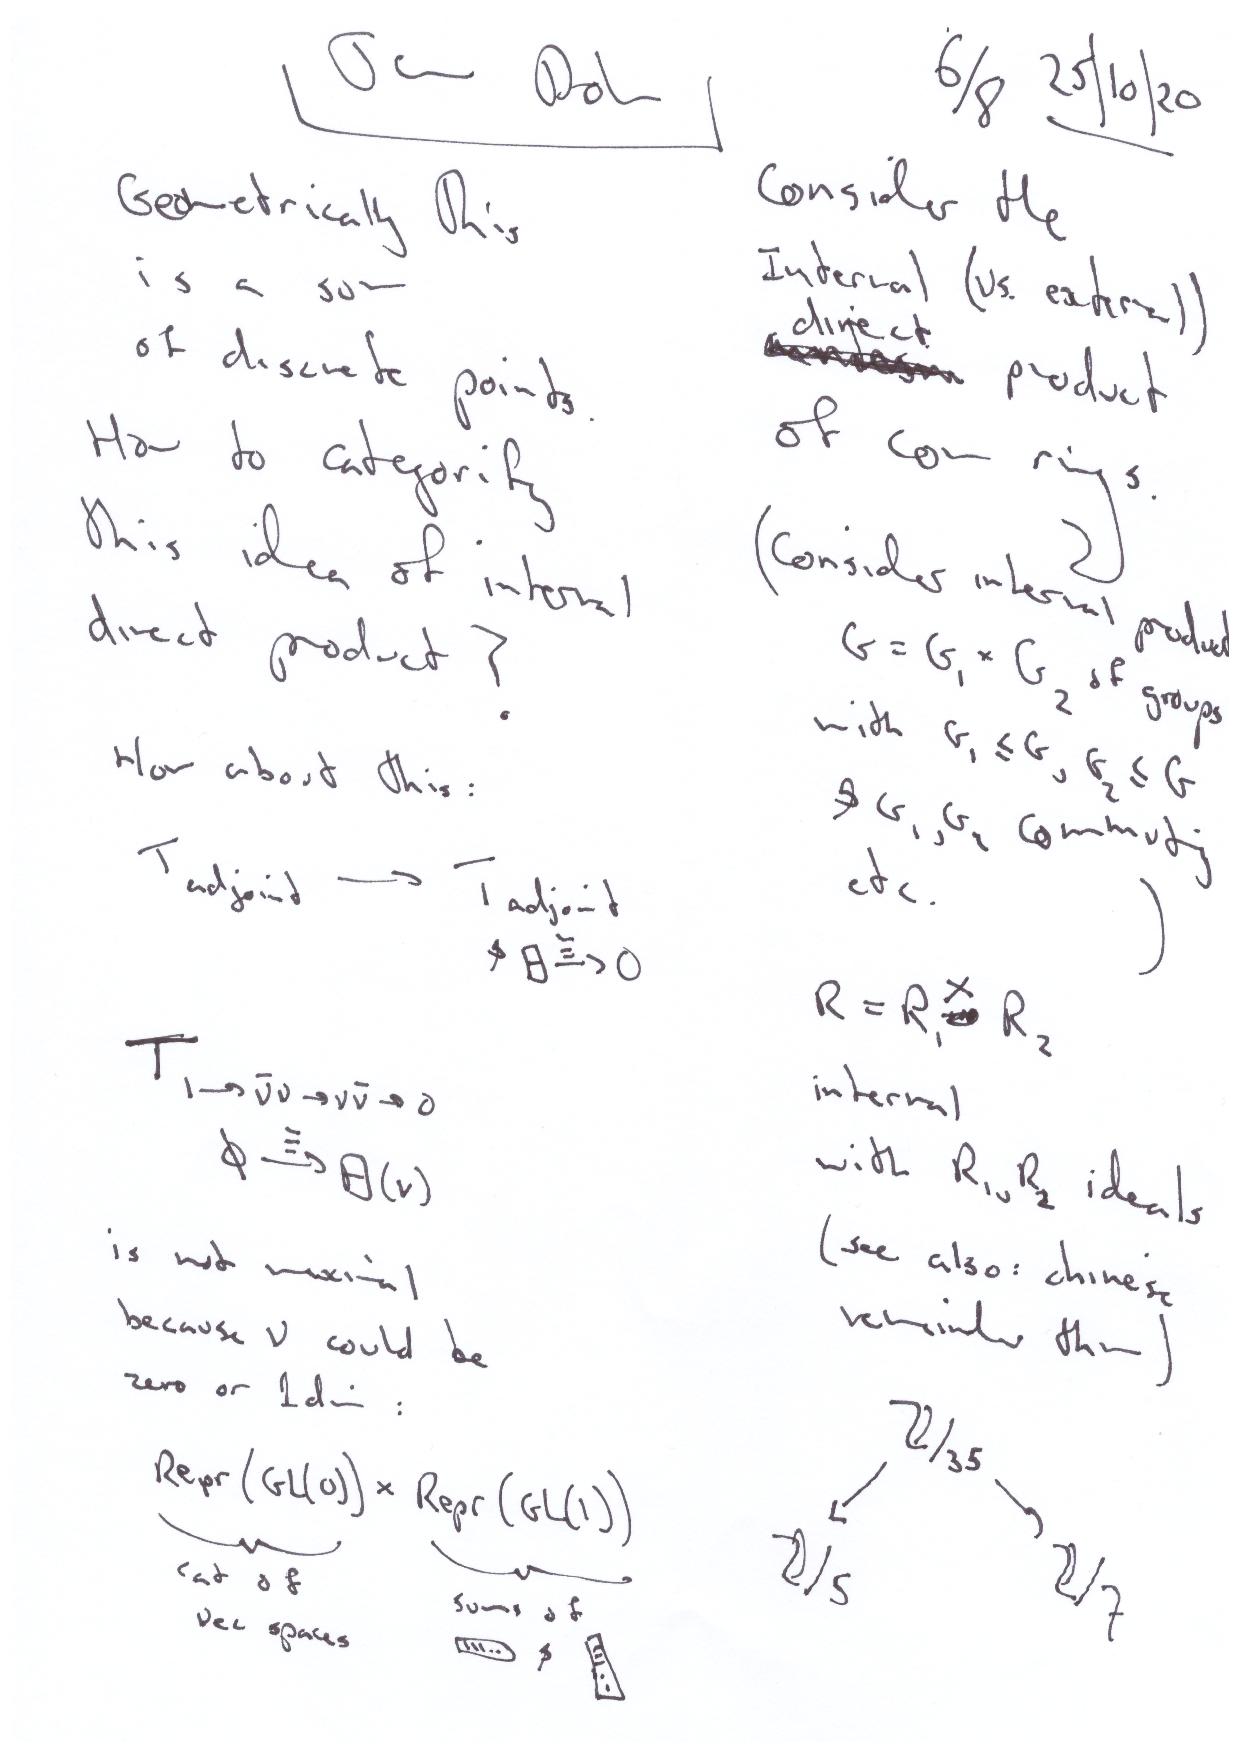 6/8 25/10/20
Geometrically this
is a sum
of discrete points.
How to categorify
this idea of internal
direct product?
How about this:
T adjoint → T adjoint
→ 0
T 1 → v̄v → vv̄ → 0
(v)
is not maximal
because v could be
zero or 1dim:
Repr(GL(0)) × Repr(GL(1))
cat of
vec spaces
sums of
Consider the
Internal (vs. external)
direct
product
of com rings.
(Consider internal product
G = G₁ × G₂ of groups
with G₁ ≤ G, G₂ ≤ G
& G₁, G₂ commuting
etc.
)
R = R₁ × R₂
internal
with R₁, R₂ ideals
(see also: chinese
remainder thm)
ℤ/35
ℤ/5 ℤ/7